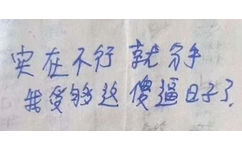 实在不行就分手
我受够这傻逼日子了.